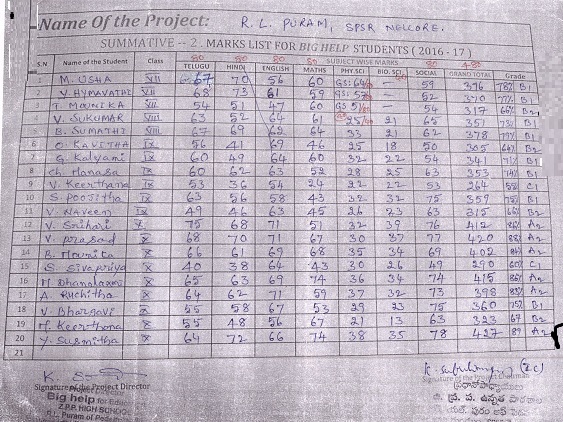 Name of the Project: R. L. PURAM, SPSR NELLORE.
SUMMATIVE -- 2 . MARKS LIST FOR BIG HELP STUDENTS ( 2016 - 17 )
80 80 80 80 SUBJECT WISE MARKS 80 480
S.N Name of the Student Class TELUGU HINDI ENGLISH MATHS PHY.SCI BIO. SCI SOCIAL GRAND TOTAL Grade
1 M. USHA VII 67 70 56 60 GS: 64 — 59 376 78% B1
2 Y. HYMAVATHI VII 68 73 61 59 GS: 57 — 52 370 77% B1
3 T. MOUNIKA VII 54 51 47 60 GS 51 — 54 317 66% B2
4 V. SUKUMAR VIII 63 52 64 61 25 21 65 351 73% B1
5 B. SUMATHI VIII 67 69 62 64 33 21 62 378 79% B1
6 O. KAVITHA IX 56 41 69 46 25 18 50 305 64% B2
7 G. Kalyani IX 60 49 64 60 32 22 54 341 71% B1
8 Ch. Manasa IX 60 62 63 52 28 25 63 353 74% B1
9 V. Keerthana IX 53 36 54 24 22 22 53 264 55% C1
10 S. Poojitha IX 63 56 58 43 32 32 75 359 75% B1
11 V. Naveen IX 49 46 63 45 26 23 63 315 66% B2
12 V. Srihari X 75 68 71 51 32 39 76 412 86% A2
13 V. Prasad X 68 70 71 67 30 37 77 420 88% A2
14 B. Mounica X 66 61 69 68 35 34 69 402 84% A2
15 S. Sivapriya X 40 38 64 43 30 26 49 290 60% C1
16 M. Dhanalaxmi X 65 63 69 74 36 34 74 415 86% A2
17 A. Ruchitha X 64 62 71 59 37 32 73 398 83% A2
18 V. Bhargavi X 55 58 67 53 29 23 75 360 75% B1
19 M. Keerthana X 55 48 56 67 21 13 63 323 67 B2
20 Y. Susmitha X 64 72 66 74 38 35 78 427 89 A2
21
Signature of the Project Director Signature of the
Project Director
Big help for
Z.P.P. HIGH SCHOOL
Puram of